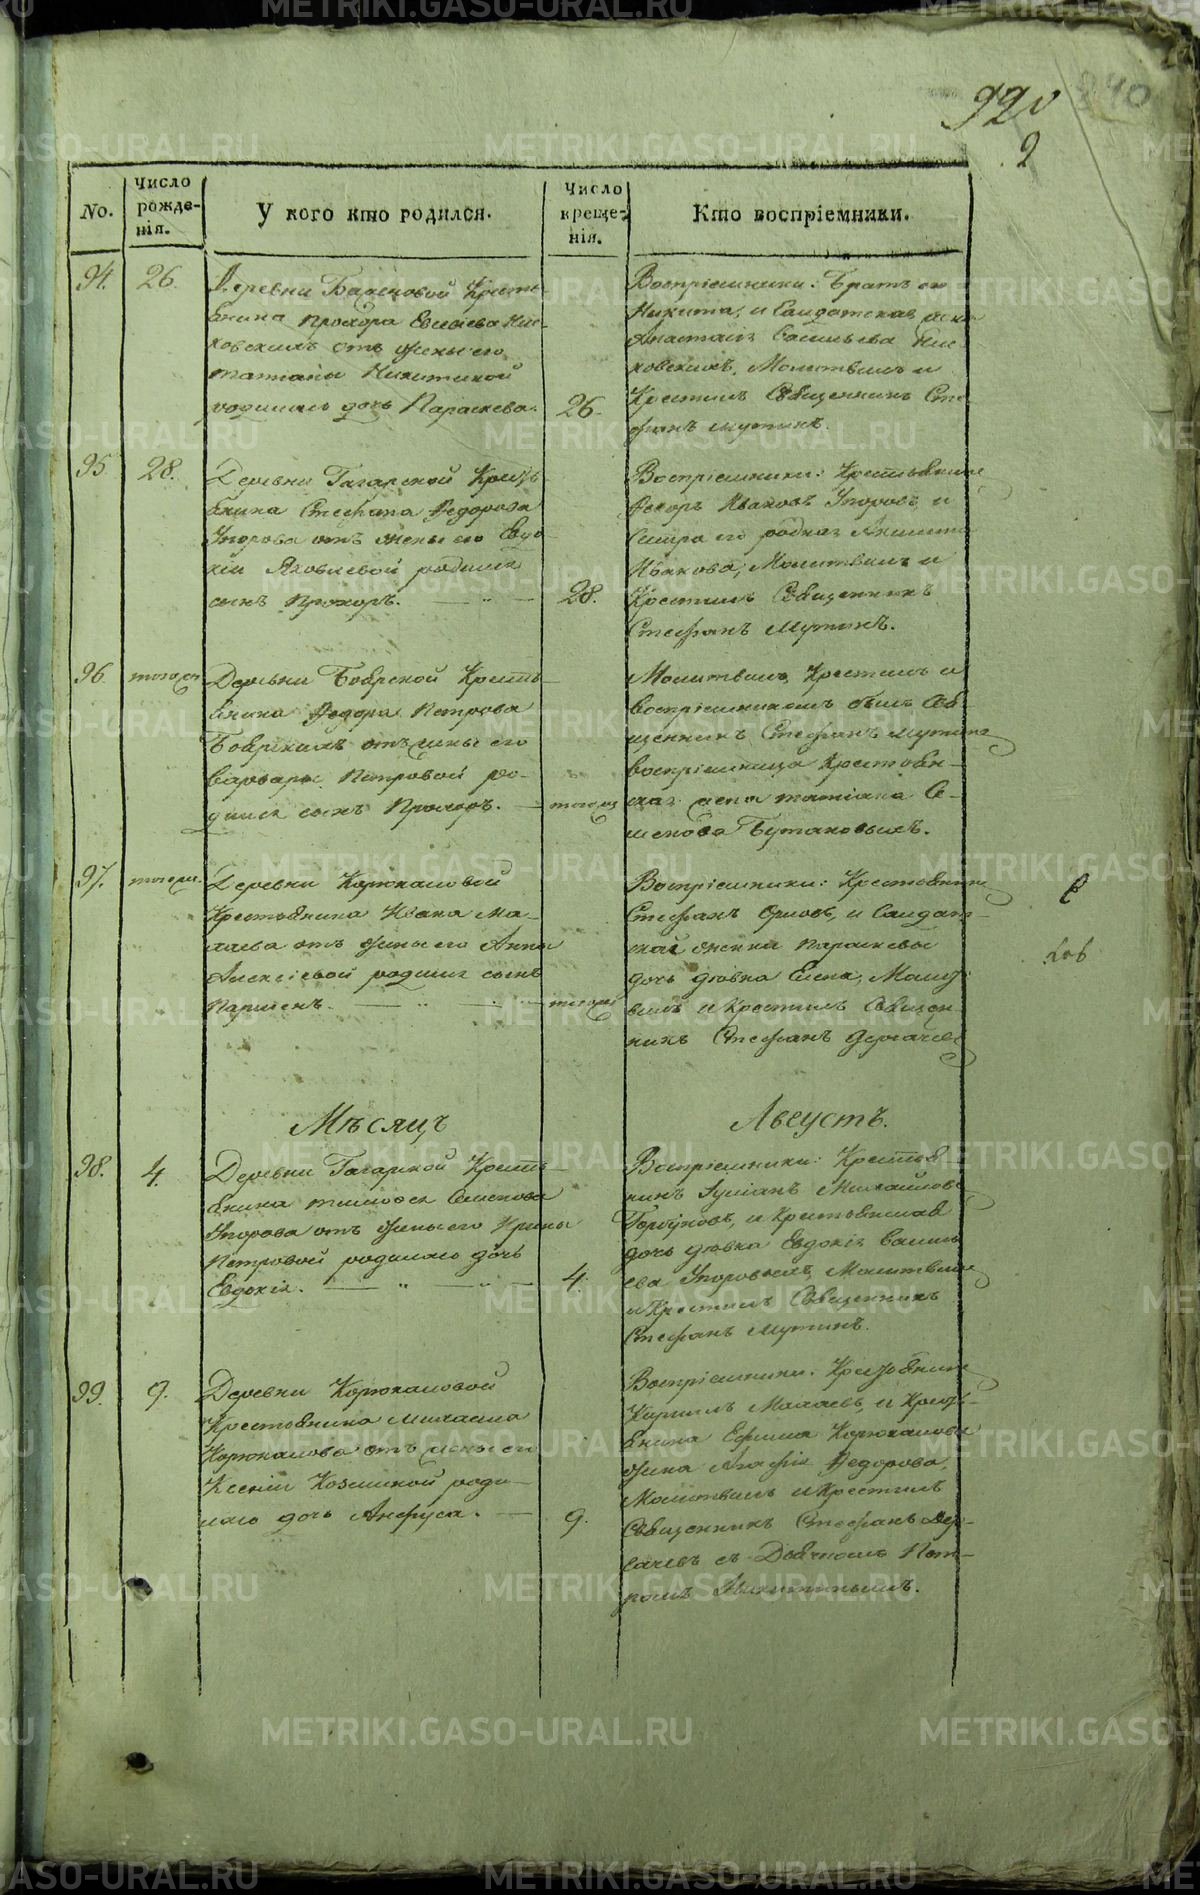 METRIKI.GASO-URAL.RU
990
2
No.
Число рожде-нія.
У кого кто родился.
Число креще-нія.
Кто воспріемники.
94.
26.
Деревни Крестья-
янина Прохора Евсѣева
ковскихъ отъ жены его
татіаны Никитиной
родилась дочь Параскева.
26.
Воспріемники: Братъ его
Никита, и Салдатская жена
Анастасія Савельева
ковскихъ. Молитвилъ и
Крестилъ Священникъ Сте-
фанъ Мутинъ.
95
28.
Деревни Гагарской Кресть
янина Стефана Федорова
Упорова отъ жены его Евдо-
кіи Яковлевой родился
сынъ Прохоръ.
28.
Воспріемники: Крестьянинъ
Ивановъ Упоровъ, и
Сестра его родная
Молитвилъ и
Крестилъ Священникъ
Стефанъ Мутинъ.
96
тогожъ
Деревни Боярской Кресть-
янина Федора Петрова
Боярскихъ отъ жены его
Варвары Петровой ро-
дился сынъ Прохоръ.
тогожъ
Молитвилъ, Крестилъ и
воспріемникомъ былъ Свя-
щенникъ Стефанъ Мутинъ
воспріемница Крестьян-
ская жена татіана Се-
менова Бутаковыхъ.
97.
тогожъ.
Деревни Корюкаловой
Крестьянина Ивана Ма-
лаева отъ жены его Анны
Алексіевой родился сынъ
Парменъ.
тогожъ
Воспріемники: Крестьянинъ
Стефанъ Орловъ, и Салдат-
ской женки Параскевы
дочь дѣвка Елена, Молит-
вилъ и Крестилъ Священ-
никъ Стефанъ Дергачевъ
Мѣсяцъ
Августъ.
98.
4.
Деревни Гагарской Кресть-
янина тимофея Семенова
Упорова отъ жены его Ирины
Петровой родилась дочь
Евдокія.
4.
Воспріемники: Крестья
нинъ Михайловъ
Горбуновъ, и Крестьянская
дочь дѣвка Евдокія Василь
ева Упоровыхъ, Молитвилъ
и Крестилъ Священникъ
Стефанъ Мутинъ.
99.
9.
Деревни Корюкаловой
Крестьянина Михаила
Корюкалова отъ жены его
Ксеніи Козминой роди-
лась дочь Анфуса.
9.
Воспріемники: Крестьянинъ
Кирилъ Малаевъ, и Кресть-
янина Ефима Корюкалова
жена Агафія Федорова,
Молитвилъ и Крестилъ
Священникъ Стефанъ Дер-
гачевъ съ Дьячкомъ Пет-
ромъ Никитинымъ.